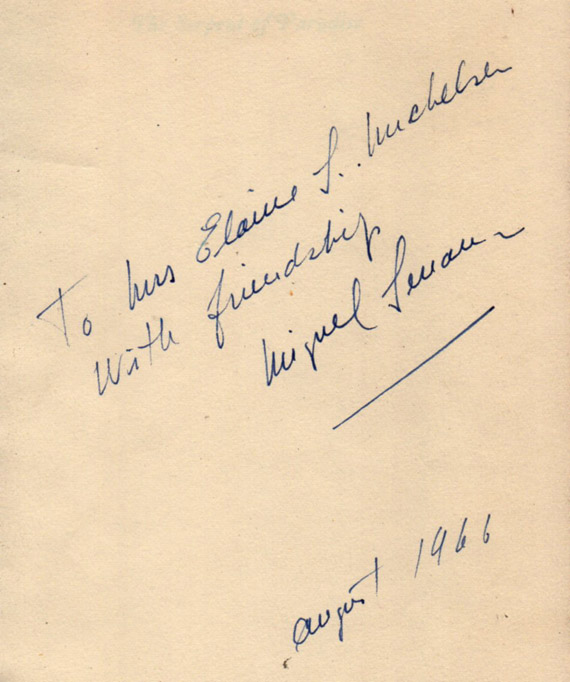 To Mrs Elaine L. Michelsen
With friendship
Miguel Serrano
august 1966